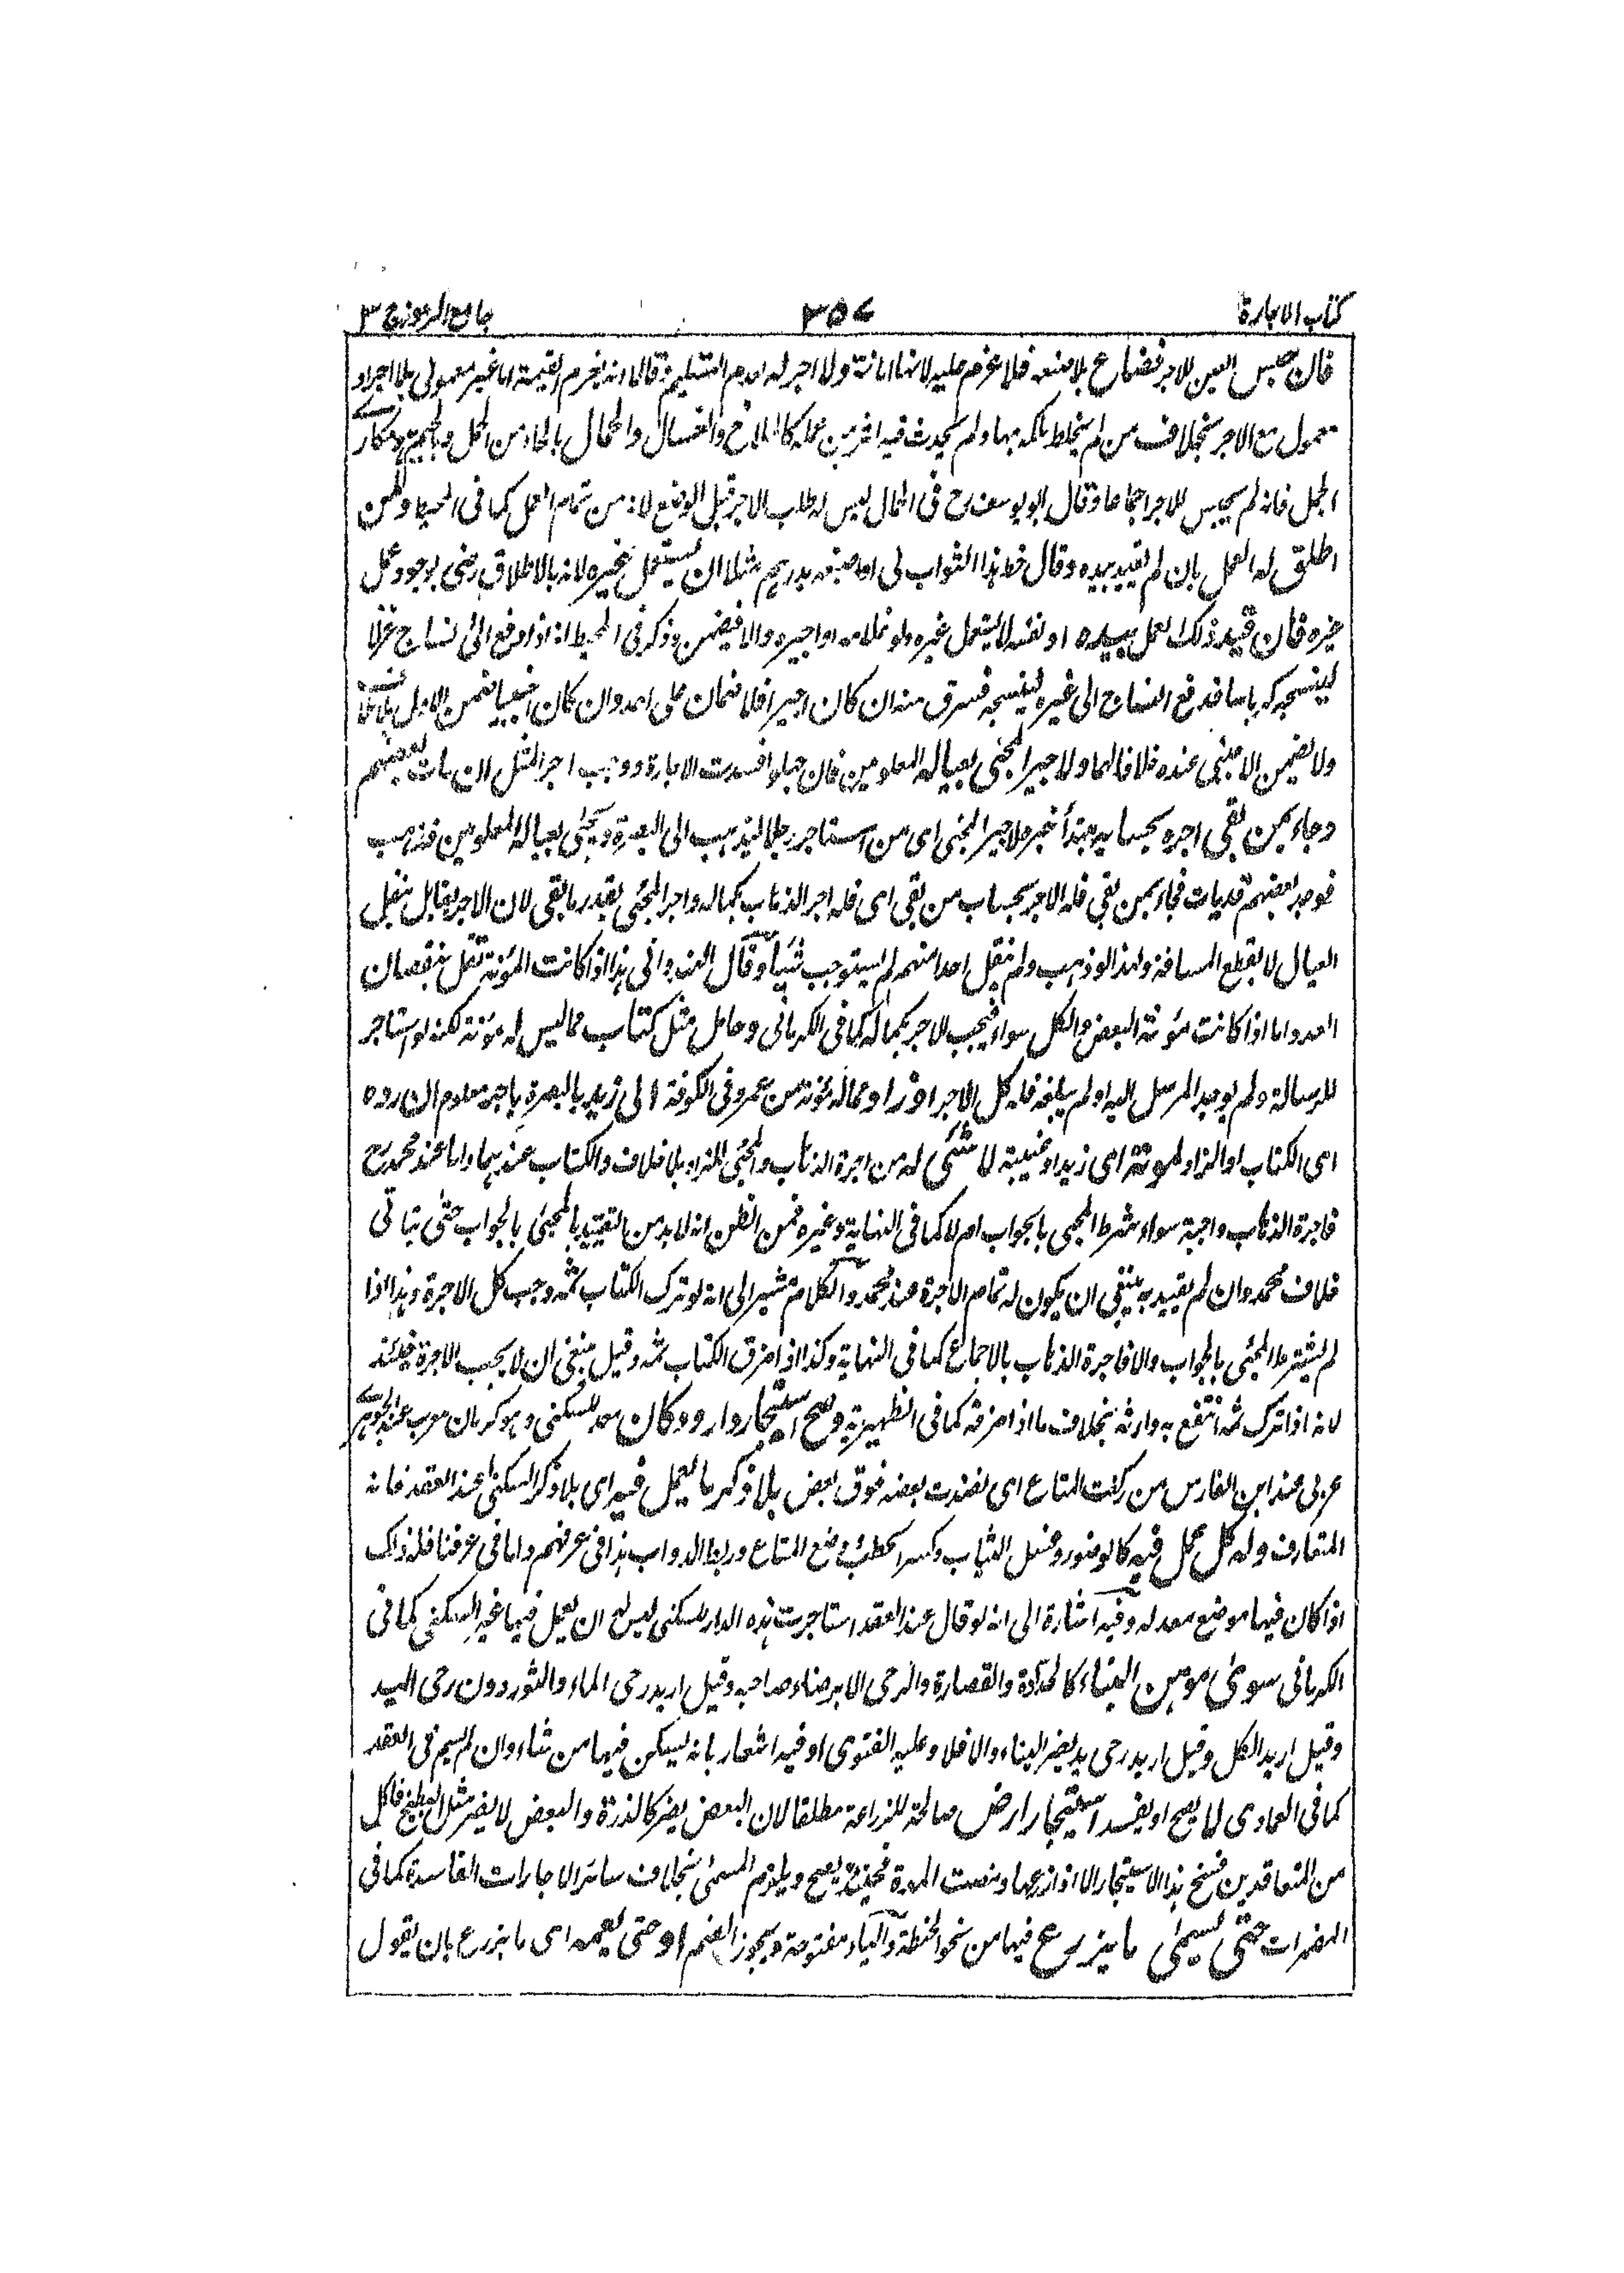 كتاب الاجارة ٣٥٧ جامع الرموز ج ٣
فان حبس العين للاجر فضاع بلا صنعه فلا غرم عليه لانها امانة ولا اجر له لعدم التسليم وقالا انه يغرم القيمة اما غير معمولى بلا اجر او
معمول مع الاجر بخلاف من لم يختلط ملكه بها ولم يحدث فيه اثر من عمله كالملاح والغسال والحمال بالحاء من الحمل وبالجيم
الجمل فانه لم يحبس للاجر اجماعا وقال ابو يوسف رح فى الحمال ليس له طلب الاجر قبل الوضع لانه من تمام العمل كما فى المحيط ولمن
اطلق له العمل بان لم يقيد بيده وقال خط هذا الثواب لى او اصبغه بدرهم مثلا ان يستعمل غيره لانه بالاطلاق رضى بوجود عمل
غيره فان قيد ذلك العمل بيده او نفسه لا يستعمل غيره ولو غلامه او اجيره والا فيضمن وذكر فى المحيط انه اذا دفع الى نساج غزلا
لينسجه كرباسا فدفع النساج الى غيره لينسجه فسرق منه ان كان اجيرا فلا ضمان على احد وان كان اجنبيا ضمن الاول بلا خلاف
ولا يضمن الاجنبى عنده خلافا لهما ولاجير المجئى بعياله المعلومين فان جهلوا فسدت الاجارة ووجب اجر المثل ان مات بعضهم
وجاء بمن بقى اجره بحسابه مبتدأ خبره لاجير المجئى اى من استاجر رجلا ليذهب الى البصرة ويجئى بعياله المعلومين فذهب
فوجد بعضهم قد مات فجاء بمن بقى فله الاجر بحساب من بقى اى فله اجر الذهاب بكماله واجر المجئى بقدر ما بقى لان الاجر يقابل بنقل
العيال لا بقطع المسافة ولهذا لو ذهب ولم ينقل احدا منهم لم يستوجب شيئا وقال الهندوانى هذا اذا كانت المؤنة تقل بنقصان
العدد واما اذا كانت مؤنة البعض والكل سواء فيجب الاجر بكماله كما فى الكرمانى وحامل مثل كتاب مما ليس له مؤنة لكنه لو استاجر
للرسالة ولم يوجد المرسل اليه او لم يبلغه فله كل الاجر او زاد مما له مؤنة من عمرو فى الكوفة الى زيد بالبصرة باجرة معلوم ان رده
اى الكتاب او الزاد لموته اى زيد او غيبته لا شئى له من اجرة الذهاب والمجئى للزاد بلا خلاف والكتاب عندهما واما عند محمد رح
فاجرة الذهاب واجبة سواء شرط المجئى بالجواب ام لا كما فى النهاية وغيره فمن الظن انه لا بد من التقييد بالمجئى بالجواب حتى يتاتى
خلاف محمد وان لم يقيد به ينبغى ان يكون له تمام الاجرة عند محمد والكلام مشير الى انه لو ترك الكتاب ثمه وجب كل الاجرة وهذا اذا
لم يشترط المجئى بالجواب والا فاجرة الذهاب بالاجماع كما فى النهاية وكذا اذا مزق الكتاب ثمه وقيل ينبغى ان لا يجب الاجرة حينئذ
لانه اذا ترك ثمه انتفع به وارثه بخلاف ما اذا مزقه كما فى الظهيرية وصح استيجار دار ودكان معد للسكنى وهو كرمان معرب عند الجوهرى
عربى عند ابن الفارس من ركنت المتاع اى نضدت بعضه فوق بعض بلا ذكر ما يعمل فيه اى بلا ذكر السكنى عند العقد فانه
المتعارف وله كل عمل فيه كالوضوء وغسل الثياب وكسر الحطب ووضع المتاع وربط الدواب هذا فى عرفهم واما فى عرفنا فله ذلك
اذا كان فيها موضع معد له وفيه اشارة الى انه لو قال عند العقد استاجرت هذه الدار للسكنى ليس له ان يعمل فيها غير السكنى كما فى
الكرمانى سوى موهن البناء كالحدادة والقصارة والرحى الا برضاء صاحبه وقيل اريد رحى الماء والثور دون رحى اليد
وقيل اريد الكل وقيل اريد رحى يد يضر البناء والا فلا وعليه الفتوى او فيه اشعار بانه يسكن فيها من شاء وان لم يسم فى العقد
كما فى العمادى لا يصح او يفسد استيجار ارض صالحة للزراعة مطلقا لان البعض يضر كالذرة والبعض لا يضر مثل البطيخ فلكل
من المتعاقدين فسخ هذا الاستيجار الا اذا زرعها ومضت المدة فحينئذ يصح ويلزم المسمى بخلاف سائر الاجارات الفاسدة كما فى
المضمرات حتى يسمى ما يزرع فيها من نحو الحنطة والياء مفتوحة ويجوز الضم او حتى يعمم اى ما يزرع بان يقول